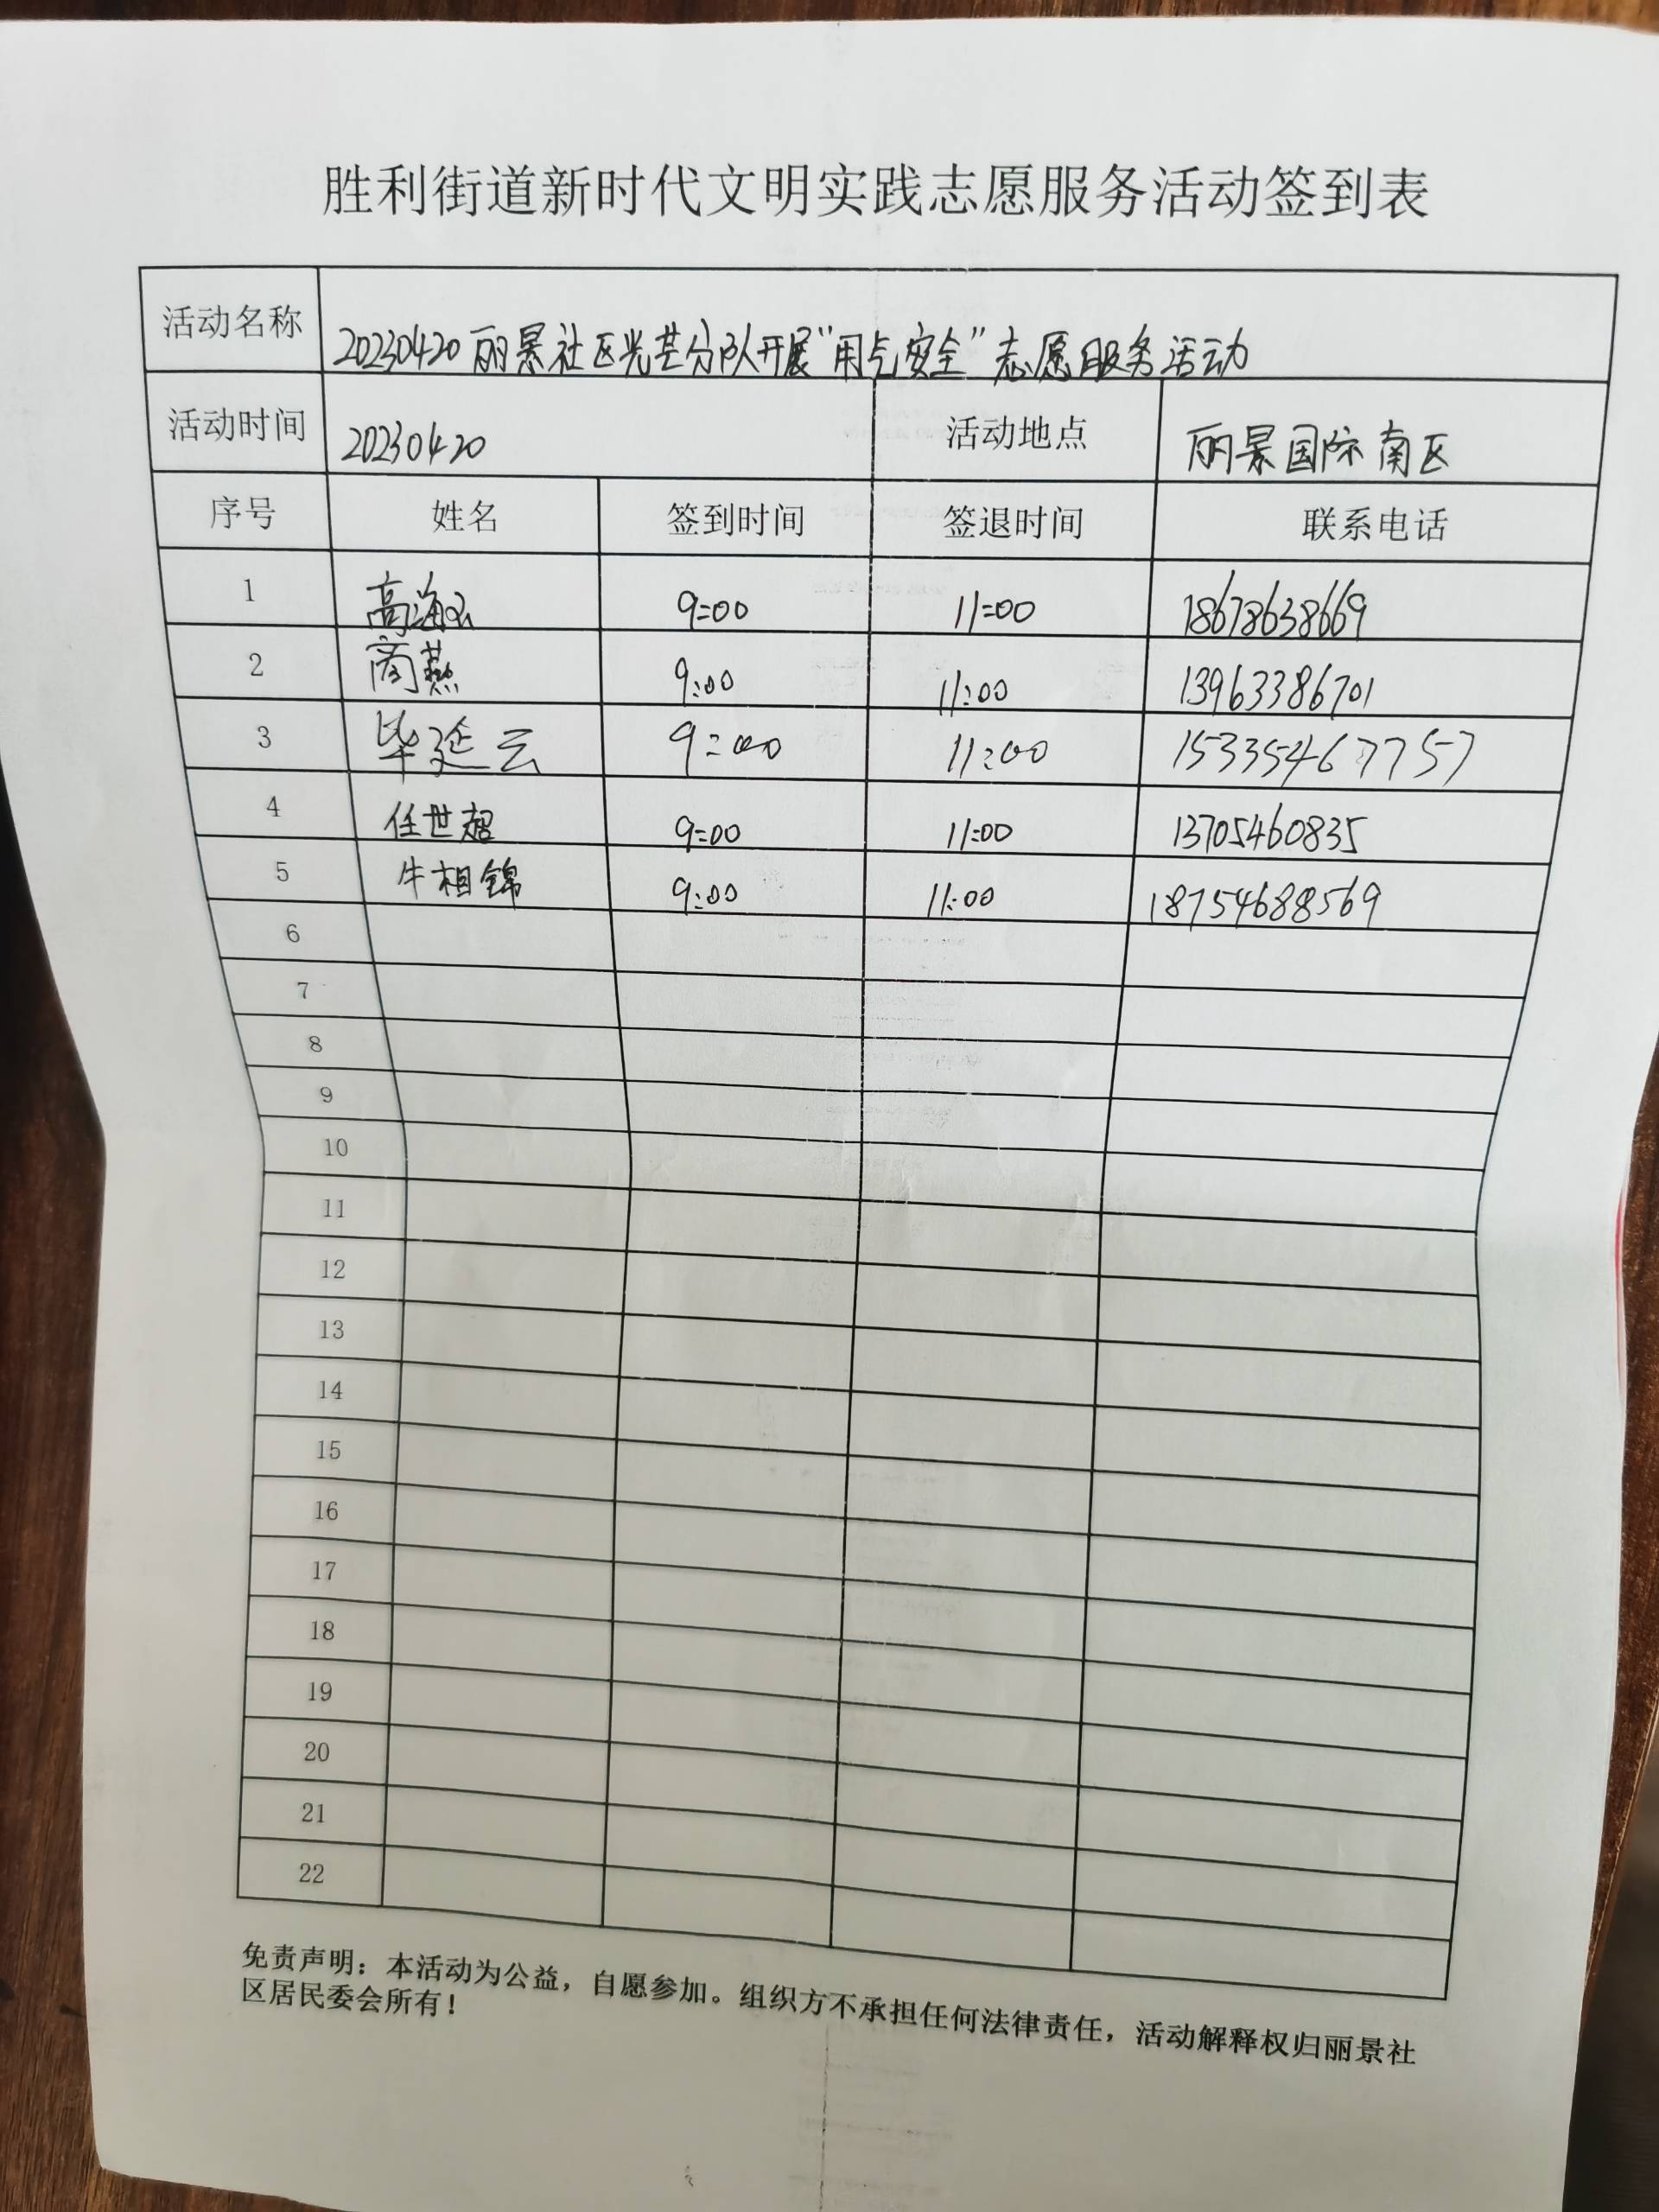 胜利街道新时代文明实践志愿服务活动签到表
活动名称 20230420丽景社区光芒分队开展“用气安全”志愿服务活动
活动时间 20230420 活动地点 丽景国际南区
序号 姓名 签到时间 签退时间 联系电话
1 高海云 9:00 11:00 18678638669
2 商燕 9:00 11:00 13963386701
3 毕延云 9:00 11:00 15335467757
4 任世超 9:00 11:00 13705460835
5 牛相锦 9:00 11:00 18754688569
6
7
8
9
10
11
12
13
14
15
16
17
18
19
20
21
22
免责声明：本活动为公益，自愿参加。组织方不承担任何法律责任，活动解释权归丽景社
区居民委会所有！